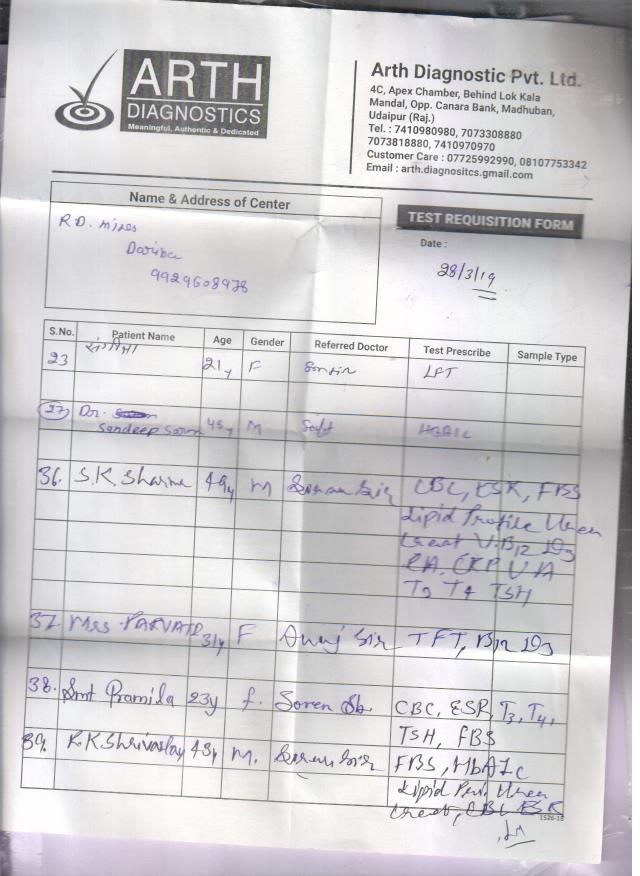 ARTH
DIAGNOSTICS
Meaningful, Authentic & Dedicated
Arth Diagnostic Pvt. Ltd.
4C, Apex Chamber, Behind Lok Kala
Mandal, Opp. Canara Bank, Madhuban,
Udaipur (Raj.)
Tel. : 7410980980, 7073308880
7073818880, 7410970970
Customer Care : 07725992990, 08107753342
Email : arth.diagnositcs.gmail.com
Name & Address of Center
TEST REQUISITION FORM
R.D. mines
Dariba
9929608978
Date :
28/3/19
S.No. Patient Name Age Gender Referred Doctor Test Prescribe Sample Type
23 21y F LFT
27 Dr.
Sandeep 45y M Self HBA1C
36. S.K. Sharma 49y M Sir CBC, ESR, FBS
Lipid Profile Urea
Creat V.B12 D3
RA, CRP U A
T3 T4 TSH
37. Mrs PARVATI 31y F Sir TFT, B12 D3
38. Smt Pramila 23y f. Soren Sb. CBC, ESR, T3, T4,
TSH, FBS
39. R.K Shrivastav 43y M. Sir FBS, HbA1c
Lipid Urea
Creat, CBC ESR
1526-18